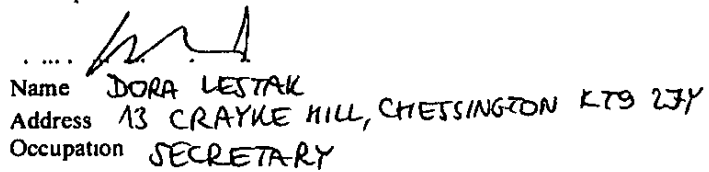 Name DORA LESTAK
Address 13 CRAYKE HILL, CHESSINGTON KT9 2JY
Occupation SECRETARY